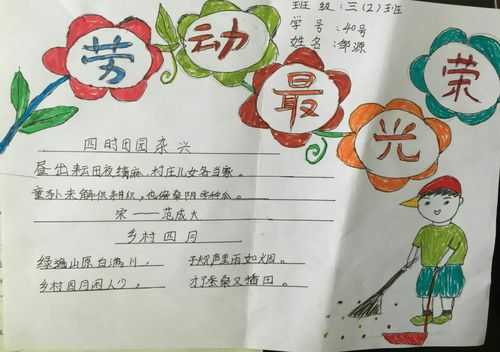 劳动最光荣
班级:三(2)班
学号:40号
姓名:邹源
四时田园杂兴
昼出耘田夜绩麻,村庄儿女各当家。
童孙未解供耕织,也傍桑阴学种瓜。
宋——范成大
乡村四月
绿遍山原白满川, 子规声里雨如烟。
乡村四月闲人少, 才了蚕桑又插田。